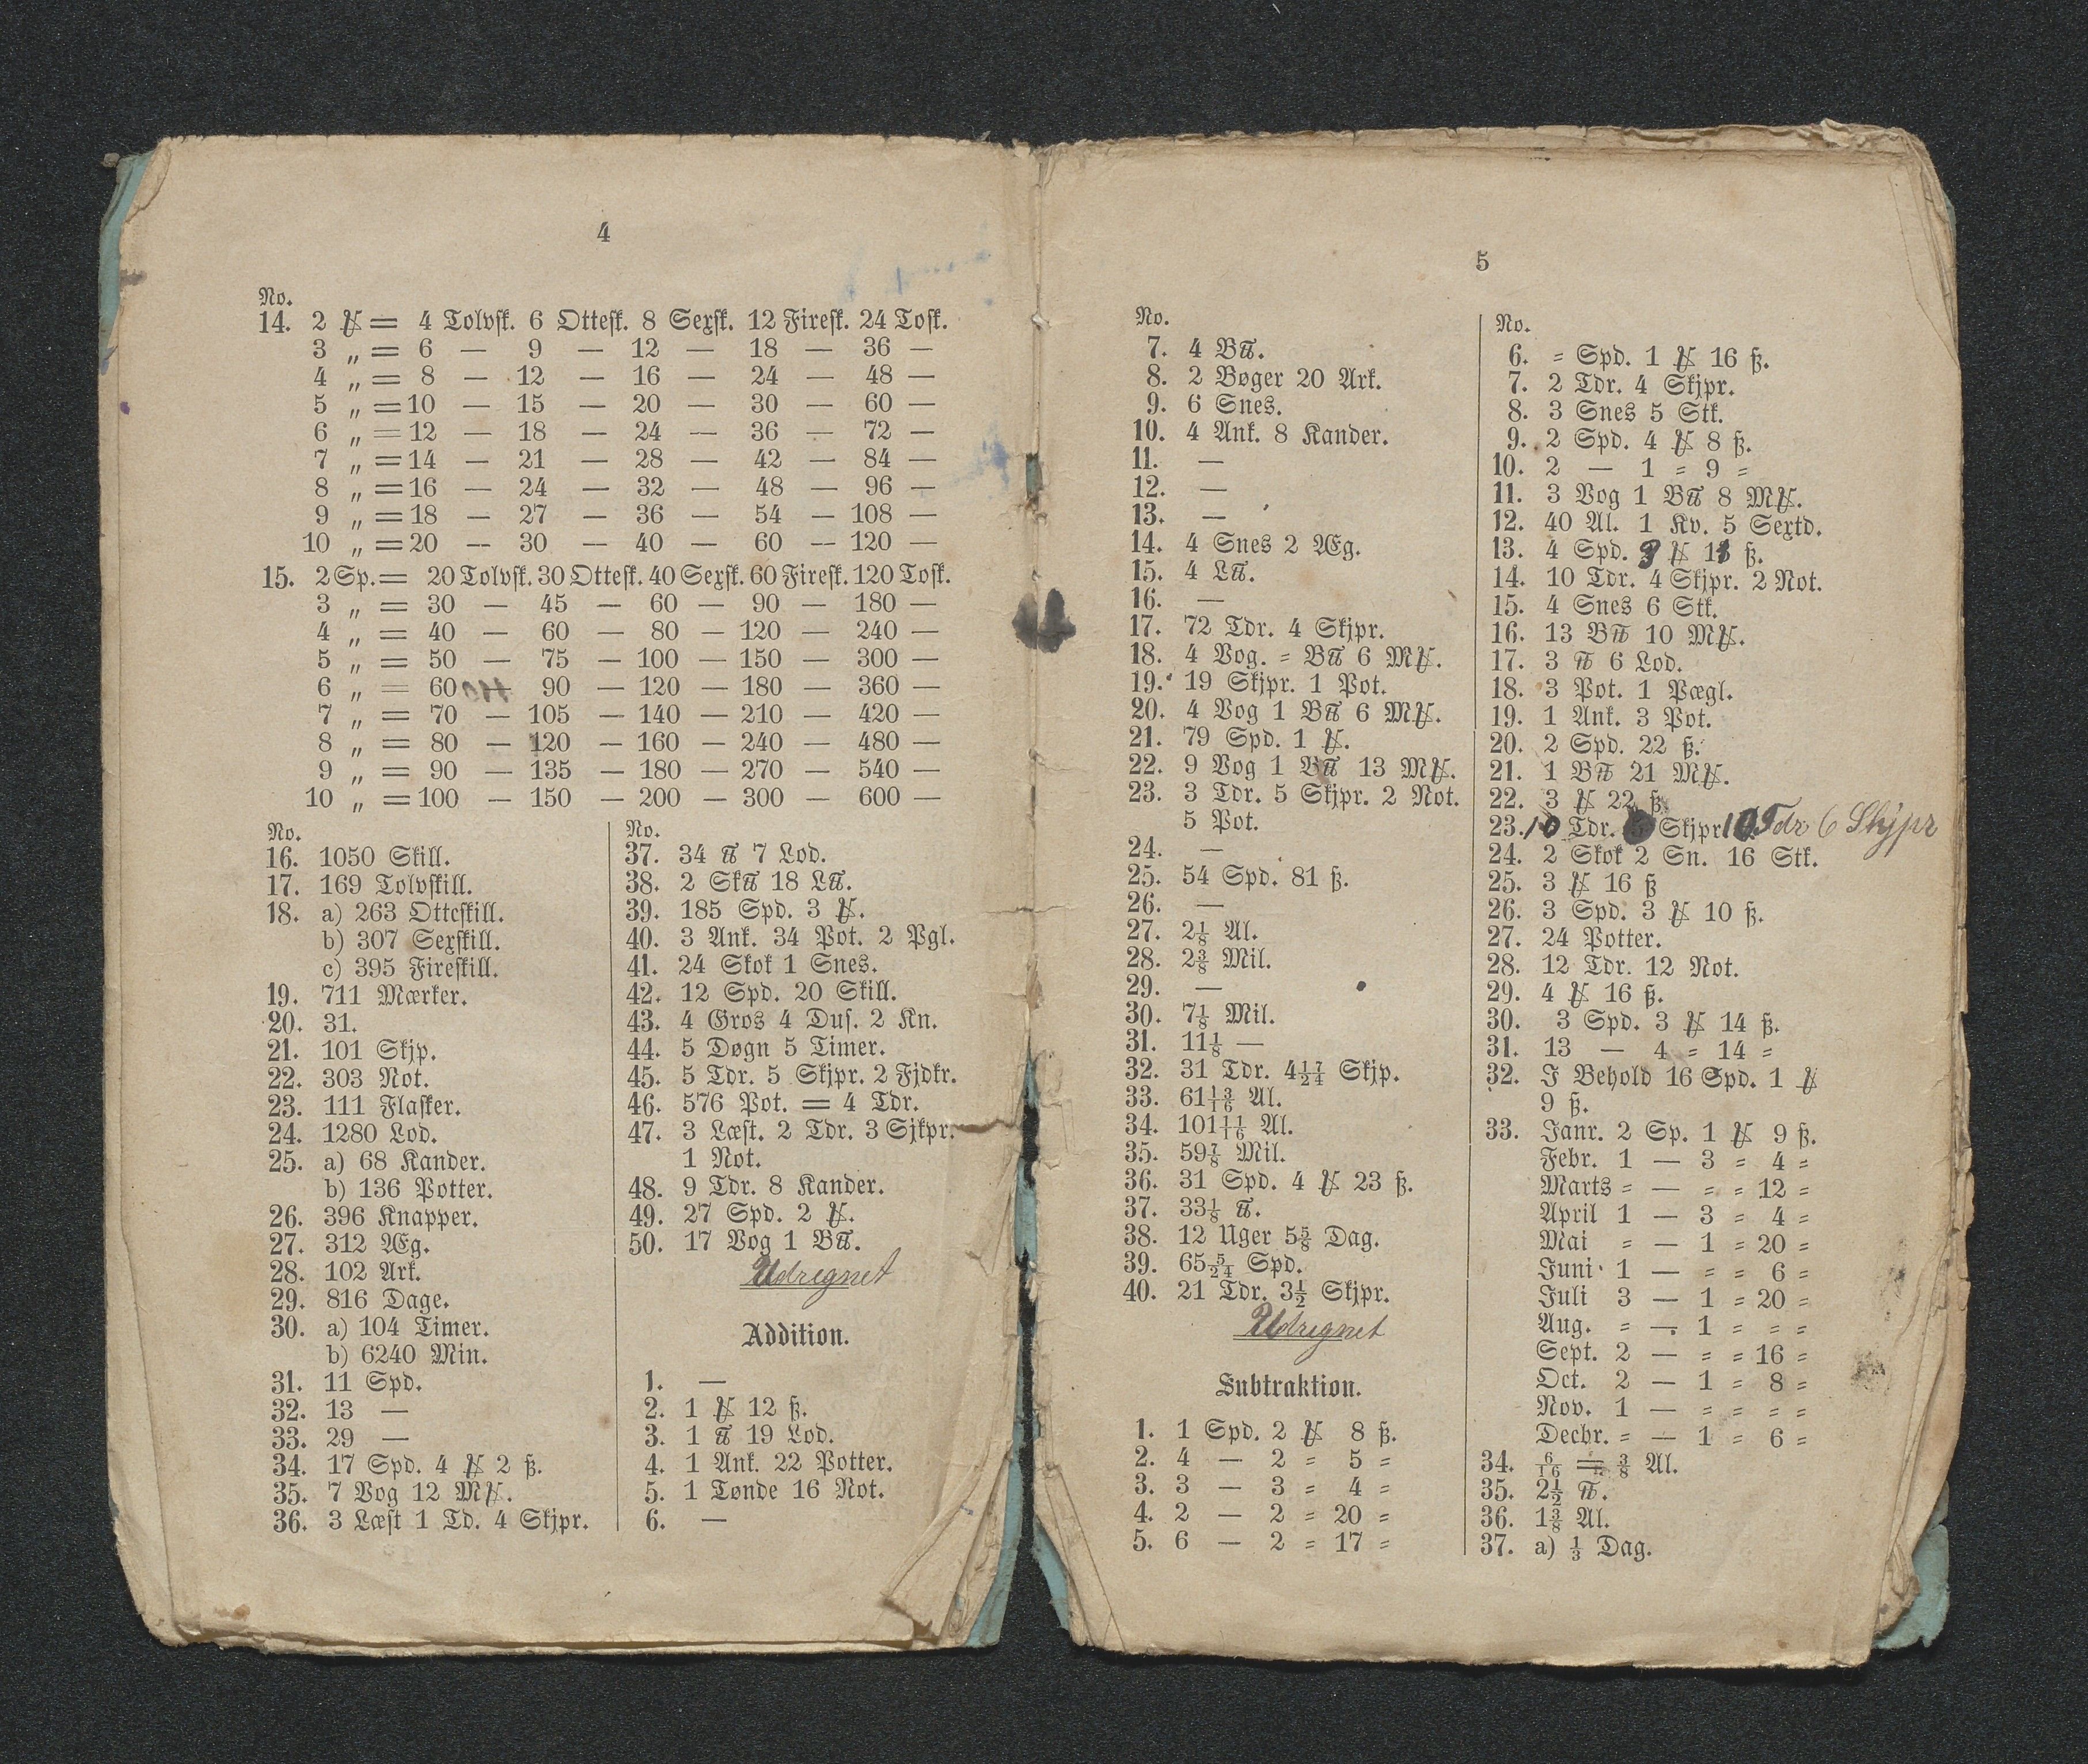 4
No.
14. 2 ꝳ = 4 Tolvsk. 6 Ottesk. 8 Sexsk. 12 Firesk. 24 Tosk.
3 „ = 6 — 9 — 12 — 18 — 36 —
4 „ = 8 — 12 — 16 — 24 — 48 —
5 „ = 10 — 15 — 20 — 30 — 60 —
6 „ = 12 — 18 — 24 — 36 — 72 —
7 „ = 14 — 21 — 28 — 42 — 84 —
8 „ = 16 — 24 — 32 — 48 — 96 —
9 „ = 18 — 27 — 36 — 54 — 108 —
10 „ = 20 — 30 — 40 — 60 — 120 —
15. 2 Sp. = 20 Tolvsk. 30 Ottesk. 40 Sexsk. 60 Firesk. 120 Tosk.
3 „ = 30 — 45 — 60 — 90 — 180 —
4 „ = 40 — 60 — 80 — 120 — 240 —
5 „ = 50 — 75 — 100 — 150 — 300 —
6 „ = 60 90 — 120 — 180 — 360 —
7 „ = 70 — 105 — 140 — 210 — 420 —
8 „ = 80 — 120 — 160 — 240 — 480 —
9 „ = 90 — 135 — 180 — 270 — 540 —
10 „ = 100 — 150 — 200 — 300 — 600 —
No.
16. 1050 Skill.
17. 169 Tolvskill.
18. a) 263 Otteskill.
b) 307 Sexskill.
c) 395 Fireskill.
19. 711 Mærker.
20. 31.
21. 101 Skjp.
22. 303 Not.
23. 111 Flasker.
24. 1280 Lod.
25. a) 68 Kander.
b) 136 Potter.
26. 396 Knapper.
27. 312 Æg.
28. 102 Ark.
29. 816 Dage.
30. a) 104 Timer.
b) 6240 Min.
31. 11 Spd.
32. 13 —
33. 29 —
34. 17 Spd. 4 ꝳ 2 ß.
35. 7 Vog 12 Mꝳ.
36. 3 Læst 1 Td. 4 Skjpr.
No.
37. 34 ℔ 7 Lod.
38. 2 Sk℔ 18 L℔.
39. 185 Spd. 3 ꝳ.
40. 3 Ank. 34 Pot. 2 Pgl.
41. 24 Skok 1 Snes.
42. 12 Spd. 20 Skill.
43. 4 Gros 4 Dus. 2 Kn.
44. 5 Døgn 5 Timer.
45. 5 Tdr. 5 Skjpr. 2 Fjdkr.
46. 576 Pot. = 4 Tdr.
47. 3 Læst. 2 Tdr. 3 Sjkpr.
1 Not.
48. 9 Tdr. 8 Kander.
49. 27 Spd. 2 ꝳ.
50. 17 Vog 1 B℔.
Udregnet
Addition.
1. —
2. 1 ꝳ 12 ß.
3. 1 ℔ 19 Lod.
4. 1 Ank. 22 Potter.
5. 1 Tønde 16 Not.
6. —
5
No.
7. 4 B℔.
8. 2 Bøger 20 Ark.
9. 6 Snes.
10. 4 Ank. 8 Kander.
11. —
12. —
13. —
14. 4 Snes 2 Æg.
15. 4 L℔.
16. —
17. 72 Tdr. 4 Skjpr.
18. 4 Vog. = B℔ 6 Mꝳ.
19. 19 Skjpr. 1 Pot.
20. 4 Vog 1 B℔ 6 Mꝳ.
21. 79 Spd. 1 ꝳ.
22. 9 Vog 1 B℔ 13 Mꝳ.
23. 3 Tdr. 5 Skjpr. 2 Not.
5 Pot.
24. —
25. 54 Spd. 81 ß.
26. —
27. 2 1/8 Al.
28. 2 3/8 Mil.
29. —
30. 7 1/8 Mil.
31. 11 1/8 —
32. 31 Tdr. 4 17/24 Skjp.
33. 61 13/16 Al.
34. 101 11/16 Al.
35. 59 7/8 Mil.
36. 31 Spd. 4 ꝳ 23 ß.
37. 33 1/8 ℔.
38. 12 Uger 5 5/8 Dag.
39. 65 5/24 Spd.
40. 21 Tdr. 3 1/2 Skjpr.
Udregnet
Subtraktion.
1. 1 Spd. 2 ꝳ 8 ß.
2. 4 — 2 = 5 =
3. 3 — 3 = 4 =
4. 2 — 2 = 20 =
5. 6 — 2 = 17 =
No.
6. = Spd. 1 ꝳ 16 ß.
7. 2 Tdr. 4 Skjpr.
8. 3 Snes 5 Stk.
9. 2 Spd. 4 ꝳ 8 ß.
10. 2 — 1 = 9 =
11. 3 Vog 1 B℔ 8 Mꝳ.
12. 40 Al. 1 Kv. 5 Sextd.
13. 4 Spd. ꝳ ß.
14. 10 Tdr. 4 Skjpr. 2 Not.
15. 4 Snes 6 Stk.
16. 13 B℔ 10 Mꝳ.
17. 3 ℔ 6 Lod.
18. 3 Pot. 1 Pægl.
19. 1 Ank. 3 Pot.
20. 2 Spd. 22 ß.
21. 1 B℔ 21 Mꝳ.
22. 3 ꝳ 22 ß.
23. 10 Tdr. Skjpr 10 Tdr 6 Skjpr
24. 2 Skok 2 Sn. 16 Stk.
25. 3 ꝳ 16 ß
26. 3 Spd. 3 ꝳ 10 ß.
27. 24 Potter.
28. 12 Tdr. 12 Not.
29. 4 ꝳ 16 ß.
30. 3 Spd. 3 ꝳ 14 ß.
31. 13 — 4 = 14 =
32. I Behold 16 Spd. 1 ꝳ
9 ß.
33. Janr. 2 Sp. 1 ꝳ 9 ß.
Febr. 1 — 3 = 4 =
Marts = — = = 12 =
April 1 — 3 = 4 =
Mai = — 1 = 20 =
Juni 1 — = = 6 =
Juli 3 — 1 = 20 =
Aug. = — 1 = = =
Sept. 2 — = = 16 =
Oct. 2 — 1 = 8 =
Nov. 1 — = = = =
Decbr. = — 1 = 6 =
34. 6/16 = 3/8 Al.
35. 2 1/2 ℔.
36. 1 3/8 Al.
37. a) 1/3 Dag.